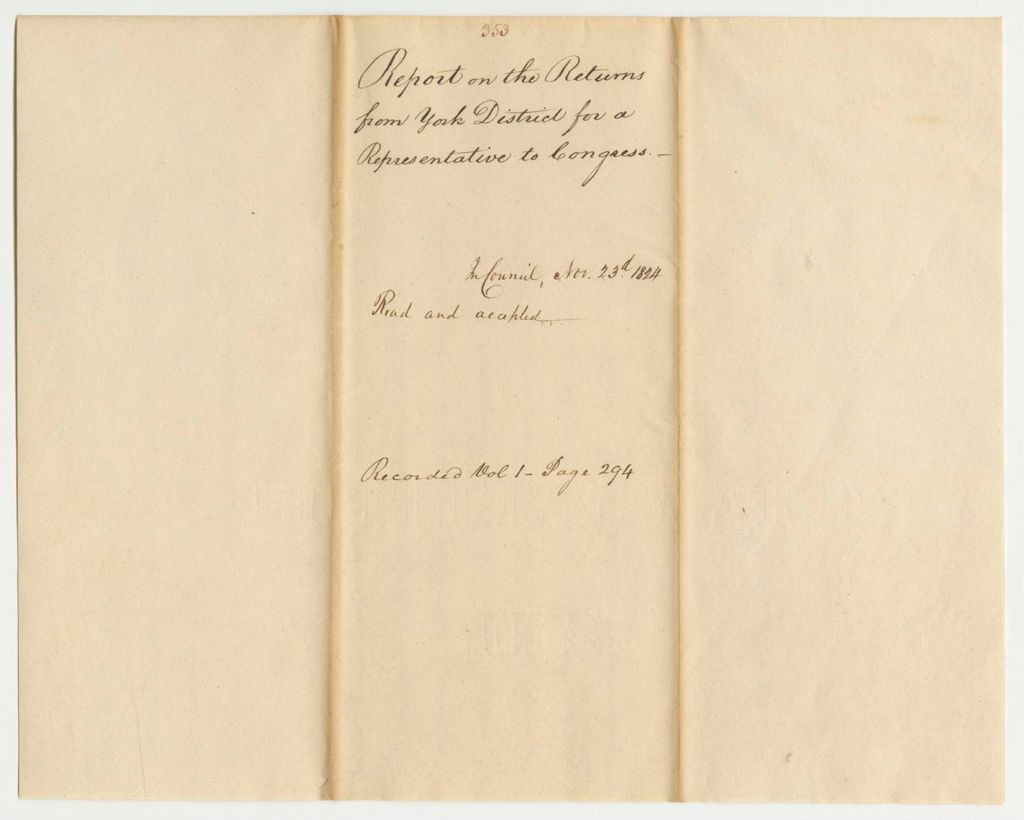 353
Report on the Returns
from York District for a
Representative to Congress. —
In Council, Nov. 23d 1824
Read and accepted
Recorded Vol 1 – Page 294